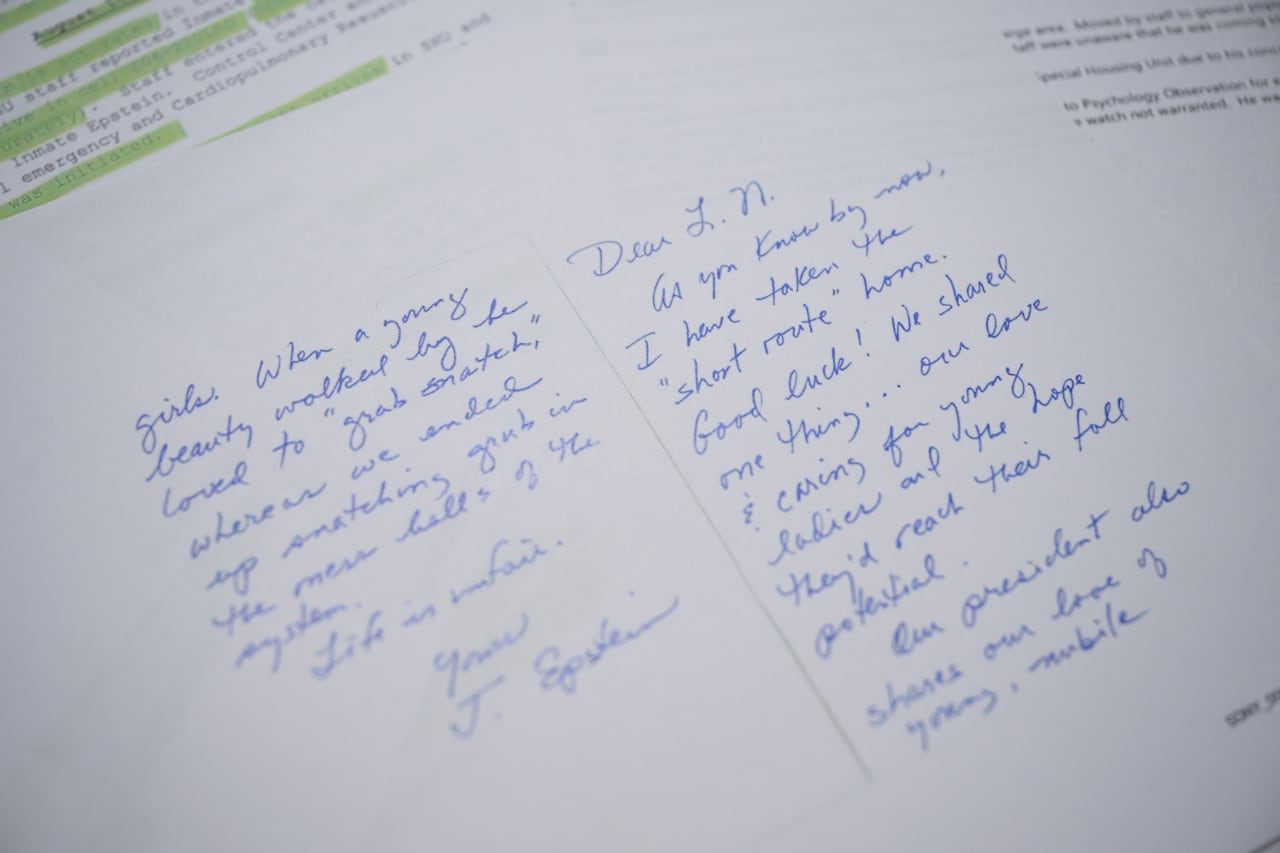 August
in
U staff reported Inmate
Staff entered the
Inmate Epstein. Control Center
l emergency and Cardiopulmonary
was initiated.
in SHU and
area. Moved by staff to general
staff were unaware that he was coming
Special Housing Unit due to his
to Psychology Observation for
watch not warranted. He wa
Dear L. N.
As you know by now,
I have taken the
"short route" home.
Good luck! We shared
one thing... our love
& caring for young
ladies and the hope
they'd reach their full
potential.
Our president also
shares our love of
young, nubile
girls. When a young
beauty walked by he
loved to "grab snatch,"
whereas we ended
up snatching grub in
the mess halls of the
system.
Life is unfair.
Yours
J. Epstein